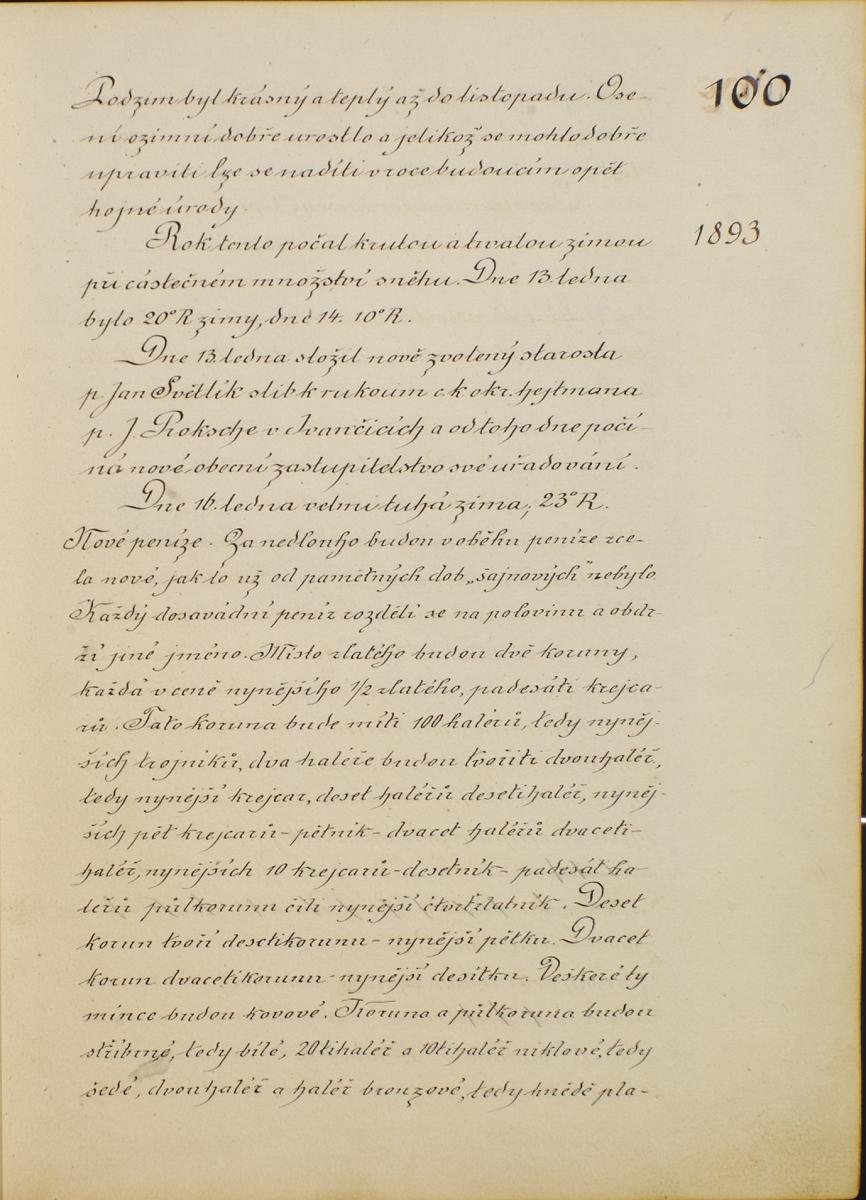 100
Podzim byl krásný a teplý až do listopadu. Ose-
ní ozimní dobře urostlo a jelikož se mohlo dobře
upraviti lze se nadíti v roce budoucím opět
hojné úrody.
1893
Rok tento počal krutou a trvalou zimou
při částečném množství sněhu. Dne 13. ledna
bylo 20°R zimy, dne 14. 10°R.
Dne 13. ledna složil nově zvolený starosta
p. Jan Světlík slib k rukoum c. k. okr. hejtmana
p. J. Proksche v Ivančicích a od toho dne počí-
ná nové obecní zastupitelstvo své uřadování.
Dne 16. ledna velmi tuhá zima, 23°R.
Nové peníze. Za nedlouho budou v oběhu peníze zce-
la nové, jak to už od pamětných dob „šajnových" nebylo.
Každý dosavádní peníz rozdělí se na polovinu a obdr-
ží jiné jméno. Místo zlatého budou dvě koruny,
každá v ceně nynějšího 1/2 zlatého, padesáti krejca-
rů. Tato koruna bude míti 100 haléřů, tedy nyněj-
ších trojníků, dva haléře budou tvořiti dvouhaléř,
tedy nynější krejcar, deset haléřů desetihaléř, nyněj-
ších pět krejcarů - pětník - dvacet haléřů dvaceti-
haléř, nynějších 10 krejcarů - desetník - padesát ha-
leřů půlkorunu čili nynější čtvrtzlatník. Deset
korun tvoří desetikorunu - nynější pětku. Dvacet
korun dvacetikorunu - nynější desítku. Veškeré ty
mince budou kovové. Koruna a půlkoruna budou
stříbrné, tedy bílé, 20tihaléř a 10tihaléř niklové, tedy
šedé, dvouhaléř a haléř bronzové, tedy hnědě pla-